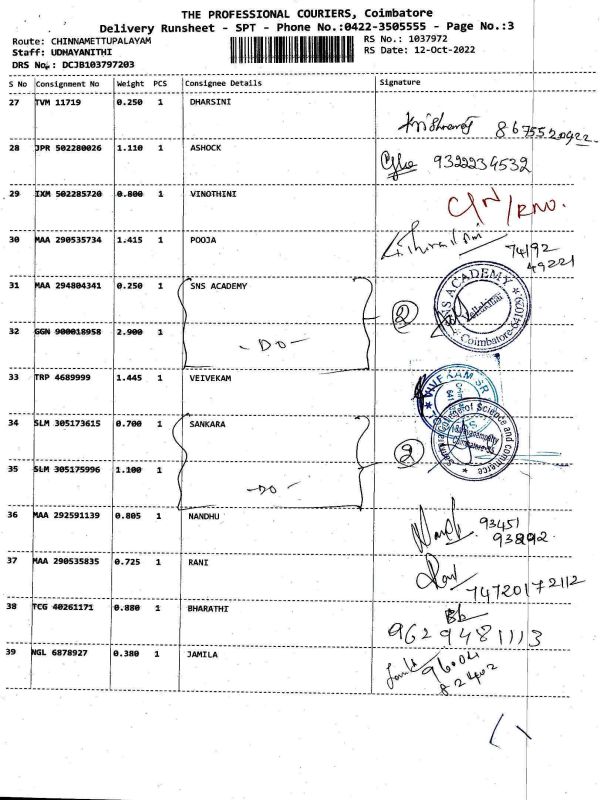 THE PROFESSIONAL COURIERS, Coimbatore
Delivery Runsheet - SPT - Phone No.:0422-3505555 - Page No.:3
Route: CHINNAMETTUPALAYAM RS No.: 1037972
Staff: UDHAYANITHI RS Date: 12-Oct-2022
DRS No.: DCJB103797203
S No Consignment No Weight PCS Consignee Details Signature
27 TVM 11719 0.250 1 DHARSINI
8675520922
28 JPR 502280026 1.110 1 ASHOCK
9322234532
29 IXM 502285720 0.800 1 VINOTHINI
C/N/RNO.
30 MAA 290535734 1.415 1 POOJA
74192
49221
31 MAA 294804341 0.250 1 SNS ACADEMY
2
SNS ACADEMY
Coimbatore-641029
32 GGN 900018958 2.900 1
- DO -
33 TRP 4689999 1.445 1 VEIVEKAM
34 SLM 305173615 0.700 1 SANKARA
2
College of Science and commerce
35 SLM 305175996 1.100 1
- DO -
36 MAA 292591139 0.805 1 NANDHU
93451
93892
37 MAA 290535835 0.725 1 RANI
74720172112
38 TCG 40261171 0.880 1 BHARATHI
9629481113
39 NGL 6878927 0.380 1 JAMILA
96004
82402